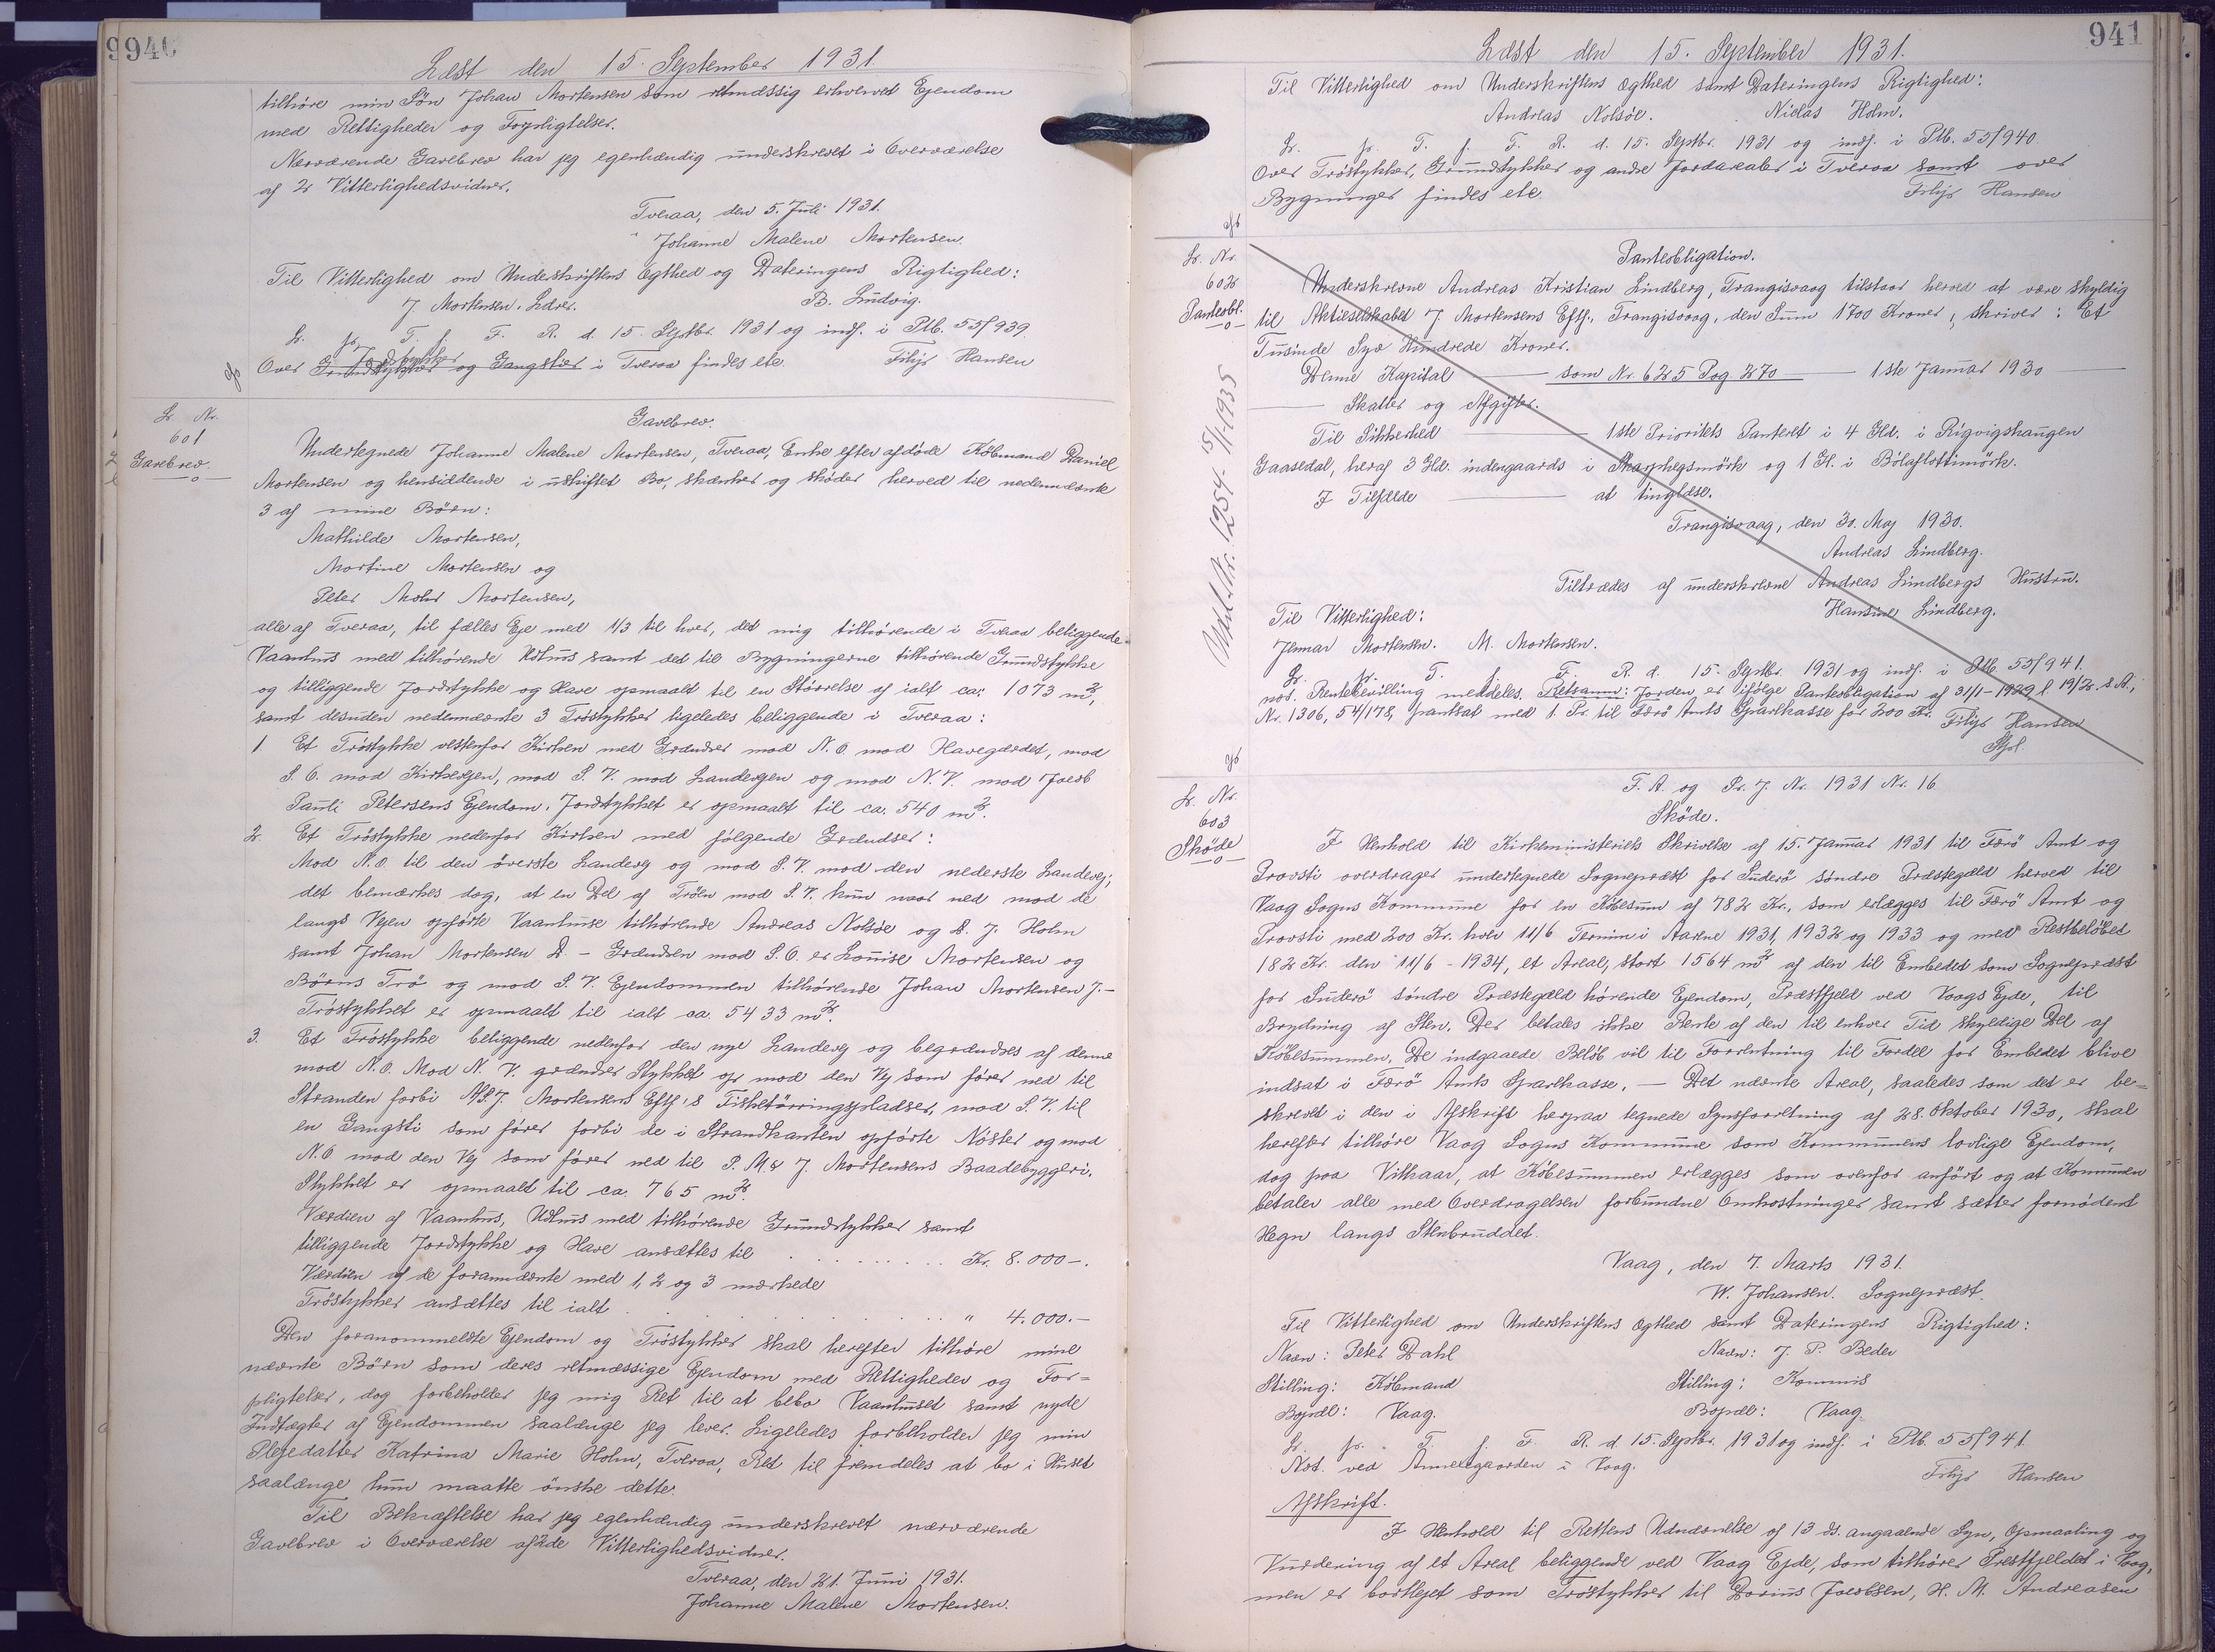 940
Læst den 15. September 1931.
tilhøre min Søn Johan Mortensen som retmæssig erhvervet Ejendom
med Rettigheder og Forpligtelser.
Nærværende Gavebrev har jeg egenhændig underskrevet i Overværelse
af 2 Vitterlighedsvidner.
Tveraa, den 5. Juli 1931.
Johanne Malene Mortensen.
Til Vitterlighed om Underskriftens Ægthed og Dateringens Rigtighed:
J. Mortensen. Ldres. B. Ludvig.
L. p. T. f. F. R. d. 15. Septbr. 1931 og indf. i Ptb. 55/939.
Jordstykker
Over Grundstykker og Gangstier i Tveraa findes etc. Filip Hansen
L. Nr.
601
Gavebrev.
Gavebrev.
Undertegnede Johanne Malene Mortensen, Tveraa, Enke efter afdøde Købmand Daniel
Mortensen og hensiddende i uskiftet Bo, skænker og skøder herved til nedennævnte
3 af mine Børn:
Mathilde Mortensen,
Martine Mortensen og
Peter Mohr Mortensen,
alle af Tveraa, til fælles Eje med 1/3 til hver, det mig tilhørende i Tveraa beliggende
Vaanhus med tilhørende Udhus samt det til Bygningerne tilhørende Grundstykke
og tilliggende Jordstykke og Have opmaalt til en Størrelse af ialt ca. 1073 m²,
samt desuden nedennævnte 3 Trøstykker ligeledes beliggende i Tveraa:
1. Et Trøstykke vestenfor Kirken med Grændser mod N.Ø. mod Havegærdet, mod
S.Ø. mod Kirkevejen, mod S.V. mod Landevejen og mod N.V. mod Jacob
Pauli Petersens Ejendom. Jordstykket er opmaalt til ca. 540 m².
2. Et Trøstykke nedenfor Kirken med følgende Grændser:
Mod N.Ø. til den øverste Landevej og mod S.V. mod den nederste Landevej;
det bemærkes dog, at en Del af Trøen mod S.V. kun naar ned mod de
langs Vejen opførte Vaanhuse tilhørende Andreas Nolsøe og S. J. Holm
samt Johan Mortensen D. - Grændsen mod S.Ø. er Louise Mortensen og
Børns Trø og mod S.V. Ejendommen tilhørende Johan Mortensen J.-
Trøstykket er opmaalt til ialt ca. 5433 m².
3. Et Trøstykke beliggende nedenfor den nye Landevej og begrændses af denne
mod N.Ø. Mod N.V. grændser Stykket op mod den Vej som fører ned til
Stranden forbi A/S. J. Mortensens Eftf's Fisketørringspladser, mod S.V. til
en Gangsti som fører forbi de i Strandkanten opførte Nøster og mod
N.Ø mod den Vej som fører ned til P. M. & J. Mortensens Baadebyggeri.
Stykket er opmaalt til ca. 765 m².
Værdien af Vaanhus, Udhus med tilhørende Grundstykker samt
tilliggende Jordstykke og Have ansættes til . . . . . . . . Kr. 8.000-.
Værdien af de forannævnte med 1, 2 og 3 mærkede
Trøstykker ansættes til ialt . . . . . . . . " 4.000.-
Den foranommeldte Ejendom og Trøstykker skal herefter tilhøre mine
nævnte Børn som deres retmæssige Ejendom med Rettigheder og For=
pligtelser, dog forbeholder jeg mig Ret til at bebo Vaanhuset samt nyde
Indtægter af Ejendommen saalænge jeg lever. Ligeledes forbeholder jeg min
Plejedatter Katrina Marie Holm, Tveraa, Ret til fremdeles at bo i Huset
saalænge hun maatte ønske dette.
Til Bekræftelse har jeg egenhændig underskrevet nærværende
Gavebrev i Overværelse af 2de Vitterlighedsvidner.
Tveraa, den 21. Juni 1931.
Johanne Malene Mortensen.
941
Læst den 15. September 1931.
Til Vitterlighed om Underskriftens Ægthed samt Dateringens Rigtighed:
Andreas Nolsöe. Niclas Holm.
L. p. T. f. F. R. d. 15. Septbr. 1931 og indf. i Ptb. 55/940.
Over Trøstykker, Grundstykker og andre Jordarealer i Tveraa samt over
Bygninger findes etc. Filip Hansen
L. Nr.
602
Panteobl.
Udsl. Nr. 1254 - 15/11-1935
Panteobligation.
Underskrevne Andreas Kristian Lindberg, Trangisvaag tilstaar herved at være skyldig
til Aktieselskabet J. Mortensens Eftf., Trangisvaag, den Sum 1700 Kroner, skriver: Et
Tusinde Syv Hundrede Kroner.
Denne Kapital — som Nr. 625 Pag. 270 — 1ste Januar 1930 —
— Skatter og Afgifter.
Til Sikkerhed — 1ste Prioritets Panteret i 4 Gld. i Rigvigshaugen
Gaasedal, heraf 3 Gld. indengaards i Skarphegsmörk og 1 Gl. i Bólaflottimörk.
I Tilfælde — at tinglæse.
Trangisvaag, den 30. Maj 1930.
Andreas Lindberg.
Tiltrædes af underskrevne Andreas Lindbergs Hustru.
Hansine Lindberg.
Til Vitterlighed:
Jenmar Mortensen. M. Mortensen.
L. p. T. f. F. R. d. 15. Septbr. 1931 og indf. i Ptb. 55/941.
nod. Rentebevilling meddeles. Retsanm: Jorden er ifølge Panteobligation af 31/1-1929 l 19/2. s.A.,
Nr. 1306, 54/178, pantsat med 1. Pr. til Færö Amts Sparekasse for 200 Kr. Filip Hansen
Stfl.
L. Nr.
603
Skøde
F. A. og Pr. J. Nr. 1931 Nr. 16
Skøde.
I Henhold til Kirkeministeriets Skrivelse af 15. Januar 1931 til Færö Amt og
Provsti overdrager undertegnede Sognepræst for Suderö søndre Præstegæld herved til
Vaag Sogns Kommune for en Købesum af 782 Kr., som erlægges til Færö Amt og
Provsti med 200 Kr. hver 11/6 Termin i Aarene 1931, 1932 og 1933 og med Restbeløbet
182 Kr. den 11/6 - 1934, et Areal, stort 1564 m² af den til Embedet som Sognepræst
for Suderö søndre Præstegæld hørende Ejendom, Præstfjeld ved Vaags Ejde, til
Brydning af Sten. Der betales ikke Rente af den til enhver Tid skyldige Del af
Købesummen. De indgaaede Beløb vil til Forrentning til Fordel for Embedet blive
indsat i Færö Amts Sparekasse. — Det nævnte Areal, saaledes som det er be=
skrevet i den i Afskrift herpaa tegnede Synsforretning af 28. Oktober 1930, skal
herefter tilhøre Vaag Sogns Kommune som Kommunens lovlige Ejendom,
dog paa Vilkaar, at Købesummen erlægges som ovenfor anført og at Kommunen
betaler alle med Overdragelsen forbundne Omkostninger samt sætter fornødent
Hegn langs Stenbruddet.
Vaag, den 7. Marts 1931.
W. Johansen. Sognepræst.
Til Vitterlighed om Underskriftens Ægthed samt Dateringens Rigtighed:
Navn: Peter Dahl Navn: J. P. Beder
Stilling: Købmand Stilling: Kommis
Bopæl: Vaag. Bopæl: Vaag.
L. p. T. f. F. R. d. 15. Septbr. 1931 og indf. i Ptb. 55/941.
Not. ved Annexgaarden i Vaag. Filip Hansen
Afskrift.
I Henhold til Rettens Udnævnelse af 13 ds. angaaende Syn, Opmaaling og
Vurdering af et Areal beliggende ved Vaag Ejde, som tilhører Prestfjeldet i Vaag,
men er bortlejet som Trøstykker til Dorius Jacobsen, H. M. Andreasen